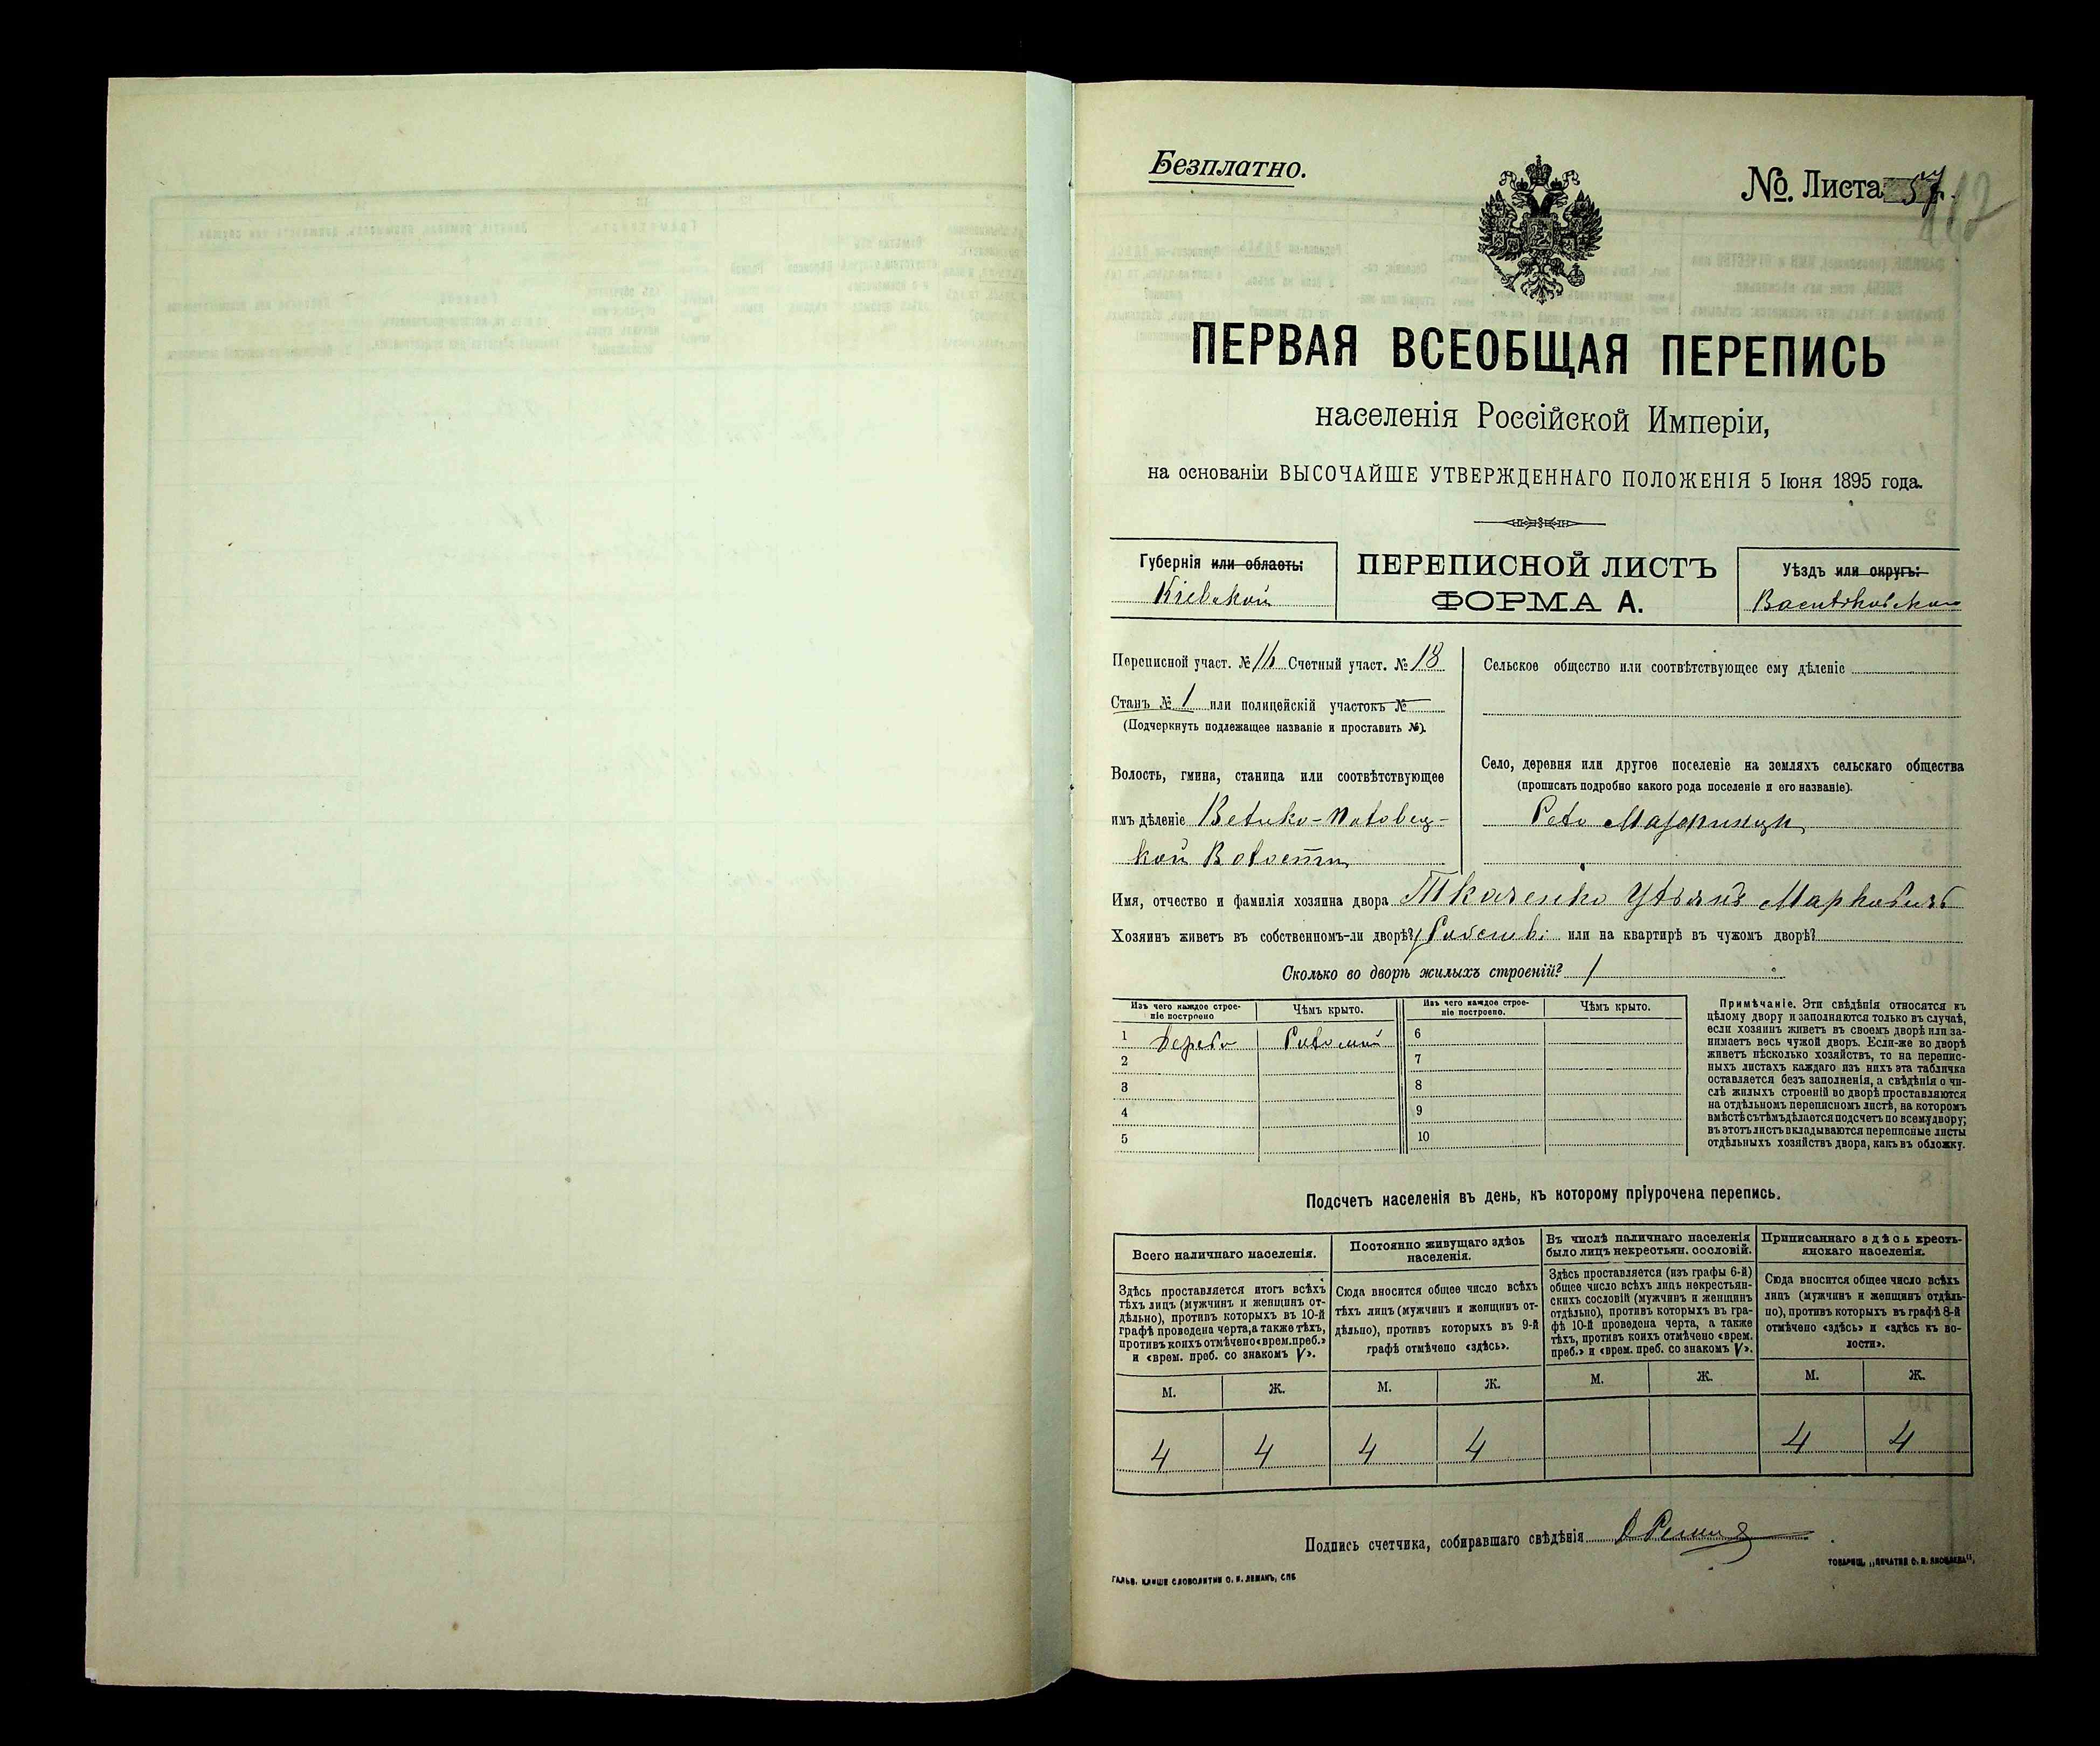 Безплатно.
№. Листа 57.
112
ПЕРВАЯ ВСЕОБЩАЯ ПЕРЕПИСЬ
населенія Россійской Имперіи,
на основаніи ВЫСОЧАЙШЕ УТВЕРЖДЕННАГО ПОЛОЖЕНІЯ 5 Іюня 1895 года.
Губернія или область:
Кіевской
ПЕРЕПИСНОЙ ЛИСТЪ
ФОРМА А.
Уѣздъ или округъ:
Васильковскаго
Переписной участ. № 16 Счетный участ. № 18
Станъ № 1 или полицейскій участокъ №
(Подчеркнуть подлежащее названіе и проставить №).
Волость, гмина, станица или соотвѣтствующее
имъ дѣленіе Велико-Половец-
кой Волости
Сельское общество или соотвѣтствующее ему дѣленіе
Село, деревня или другое поселеніе на земляхъ сельскаго общества
(прописать подробно какого рода поселеніе и его названіе).
Село
Имя, отчество и фамилія хозяина двора Ткаченко Ульянъ Марковичъ
Хозяинъ живетъ въ собственномъ-ли дворѣ? Собств: или на квартирѣ въ чужомъ дворѣ?
Сколько во дворѣ жилыхъ строеній? 1
Изъ чего каждое строе-
ніе построено
Чѣмъ крыто.
Изъ чего каждое строе-
ніе построено.
Чѣмъ крыто.
1 Дерево Соломой 6
2 7
3 8
4 9
5 10
Примѣчаніе. Эти свѣдѣнія относятся къ
цѣлому двору и заполняются только въ случаѣ,
если хозяинъ живетъ въ своемъ дворѣ или за-
нимаетъ весь чужой дворъ. Если-же во дворѣ
живетъ нѣсколько хозяйствъ, то на перепис-
ныхъ листахъ каждаго изъ нихъ эта табличка
оставляется безъ заполненія, а свѣдѣнія о чи-
слѣ жилыхъ строеній во дворѣ проставляются
на отдѣльномъ переписномъ листѣ, на которомъ
вмѣстѣ съ тѣмъ дѣлается подсчетъ по всему двору;
въ этотъ листъ вкладываются переписные листы
отдѣльныхъ хозяйствъ двора, какъ въ обложку.
Подсчетъ населенія въ день, къ которому пріурочена перепись.
Всего наличнаго населенія.
Здѣсь проставляется итогъ всѣхъ
тѣхъ лицъ (мужчинъ и женщинъ от-
дѣльно), противъ которыхъ въ 10-й
графѣ проведена черта, а также тѣхъ,
противъ коихъ отмѣчено «врем. преб.»
и «врем. преб. со знакомъ V».
Постоянно живущаго здѣсь
населенія.
Сюда вносится общее число всѣхъ
тѣхъ лицъ (мужчинъ и женщинъ от-
дѣльно), противъ которыхъ въ 9-й
графѣ отмѣчено «здѣсь».
Въ числѣ наличнаго населенія
было лицъ некрестьян. сословій.
Здѣсь проставляется (изъ графы 6-й)
общее число всѣхъ лицъ некрестьян-
скихъ сословій (мужчинъ и женщинъ
отдѣльно), противъ которыхъ въ гра-
фѣ 10-й проведена черта, а также
тѣхъ, противъ коихъ отмѣчено «врем.
преб.» и «врем. преб. со знакомъ V».
Приписаннаго здѣсь кресть-
янскаго населенія.
Сюда вносится общее число всѣхъ
лицъ (мужчинъ и женщинъ отдѣль-
но), противъ которыхъ въ графѣ 8-й
отмѣчено «здѣсь» и «здѣсь къ во-
лости».
М. Ж. М. Ж. М. Ж. М. Ж.
4 4 4 4 4 4
Подпись счетчика, собиравшаго свѣдѣнія
ГАЛЬВ. КЛИШЕ СЛОВОЛИТНИ О. И. ЛЕМАНЪ, СПБ
ТОВАРИЩ. „ПЕЧАТНЯ С. П. ЯКОВЛЕВА“,